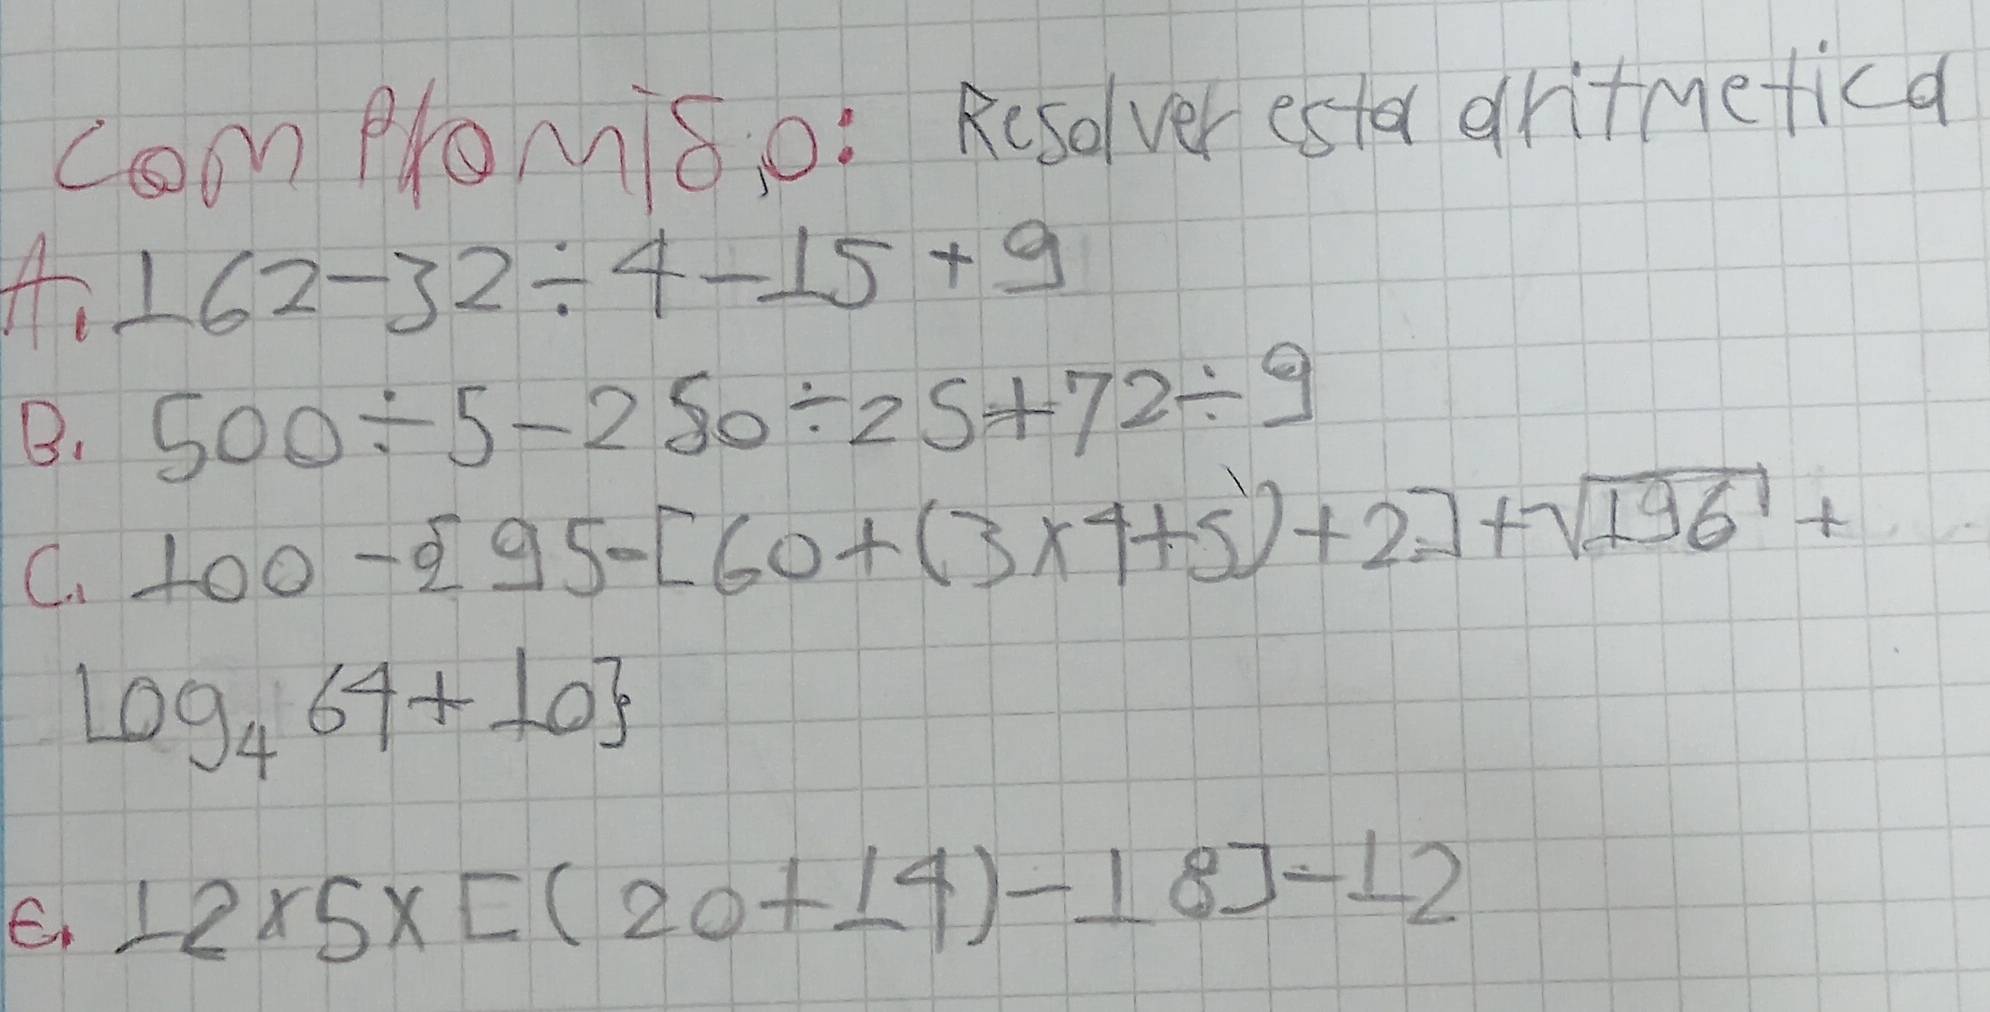 Compromiso: Resolver esta aritmetica
A. 162-32÷4-15+9
B. 500÷5-250÷25+72÷9
C. 100-{95-[60+(3x4+5)+2]+√196+
Log₄ 64+10}
E. 12x5x[(20+14)-18]-12